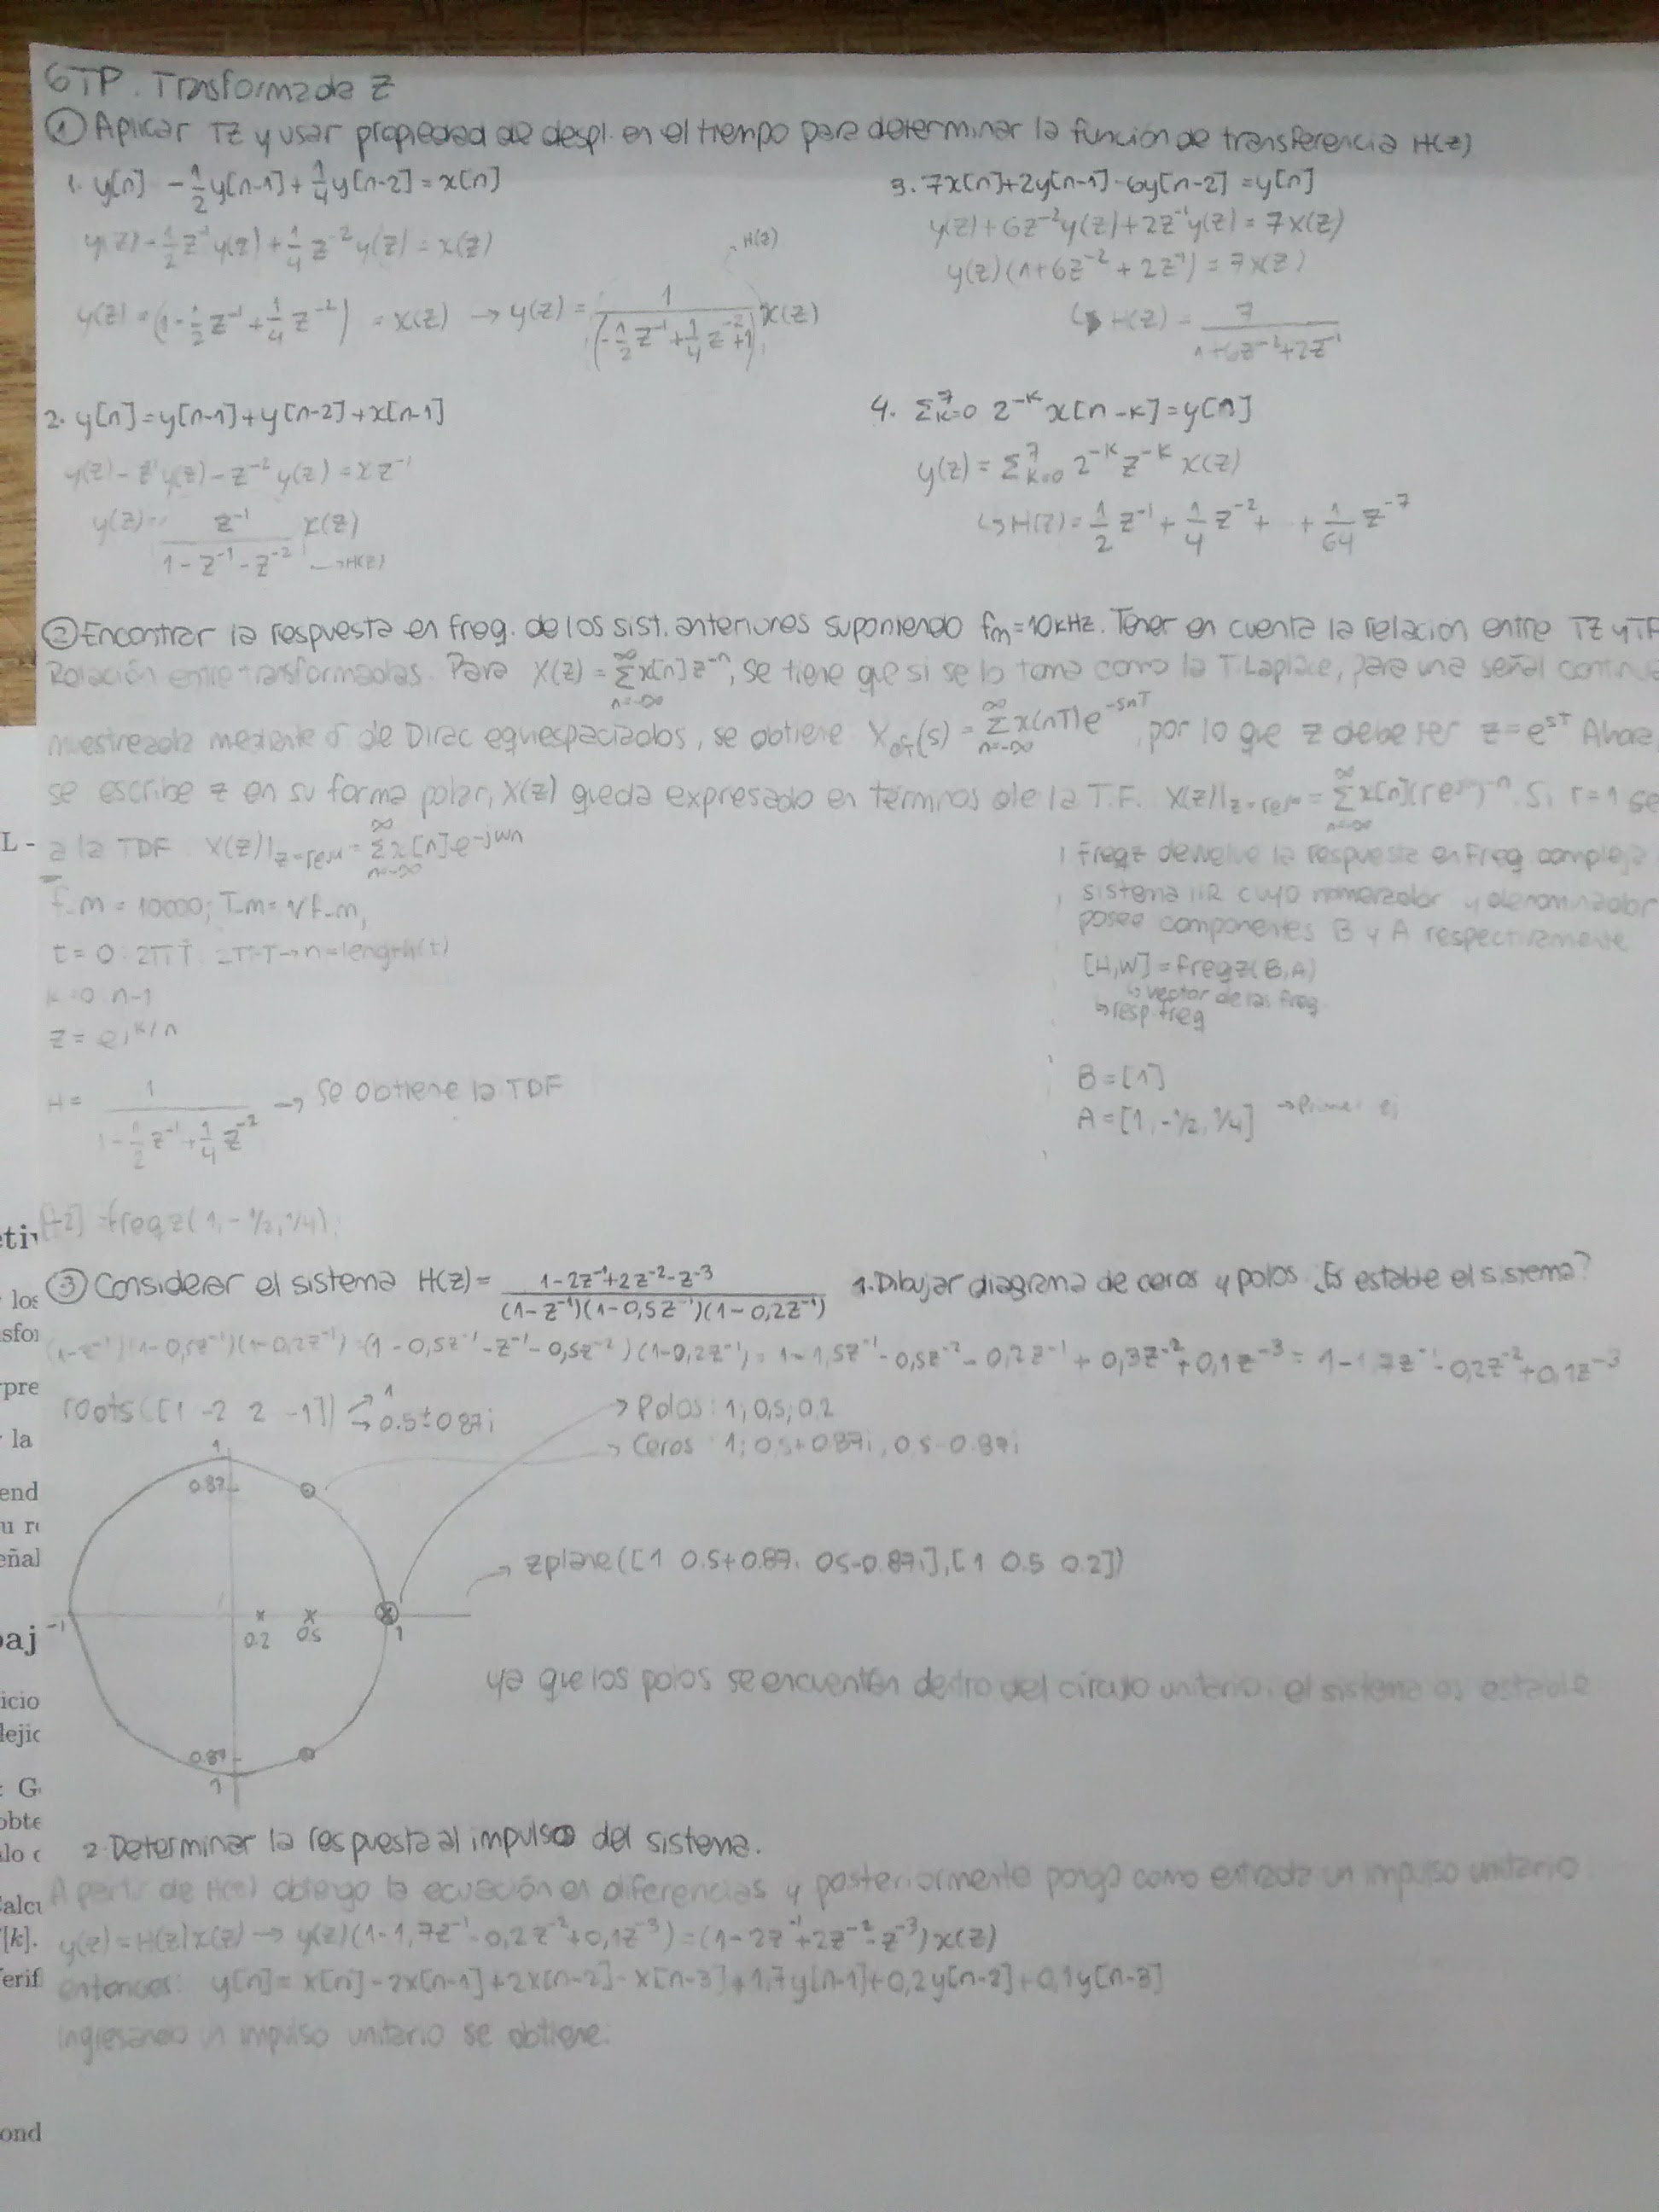 6TP. Trasformada Z
① Aplicar TZ y usar propiedad de despl. en el tiempo para determinar la función de transferencia H(z)
1. y[n] - 1/2 y[n-1] + 1/4 y[n-2] = x[n]
y(z) - 1/2 z^-1 y(z) + 1/4 z^-2 y(z) = x(z)
H(z)
y(z) = (1 - 1/2 z^-1 + 1/4 z^-2) = x(z) → y(z) = 1/(-1/2 z^-1 + 1/4 z^-2 + 1) x(z)
3. 7x[n]+2y[n-1]-6y[n-2] = y[n]
y(z)+6z^-2 y(z)+2z^-1 y(z) = 7x(z)
y(z)(1+6z^-2 + 2z^-1) = 7x(z)
↳ H(z) = 7/(1+6z^-2+2z^-1)
2. y[n] = y[n-1]+y[n-2]+x[n-1]
y(z) - z^-1 y(z) - z^-2 y(z) = x z^-1
y(z) = z^-1/(1 - z^-1 - z^-2) x(z)
→ H(z)
4. Σ_{k=0}^7 2^-k x[n-k] = y[n]
y(z) = Σ_{k=0}^7 2^-k z^-k x(z)
↳ H(z) = 1/2 z^-1 + 1/4 z^-2 + + 1/64 z^-7
② Encontrar la respuesta en freq. de los sist. anteriores suponiendo fm = 10kHz. Tener en cuenta la relación entre TZ y TF
Relación entre transformadas. Para X(z) = Σ_{n=-∞}^∞ x[n] z^-n, se tiene que si se lo toma como la T. Laplace, para una señal continua
muestreada mediante δ de Dirac equiespaciados, se obtiene X_δT(s) = Σ_{n=-∞}^∞ x(nT) e^-snT, por lo que z debe ser z = e^sT Ahora,
se escribe z en su forma polar, X(z) queda expresado en términos de la T.F. X(z)|z=re^jw = Σ_{n=-∞}^∞ x[n](re^jw)^-n. Si r=1 se
a la TDF X(z)|z=re^jw = Σ_{n=-∞}^∞ x[n] e^-jwn
f_m = 10000; T_m = 1/f_m;
t = 0 : 2πT : 2π-T → n = length(t)
k = 0 : n-1
z = e^jk/n
H = 1/(1 - 1/2 z^-1 + 1/4 z^-2) → se obtiene la TDF
freqz devuelve la respuesta en freq compleja
sistema IIR cuyo numerador y denominador
posee componentes B y A respectivamente
[H,W] = freqz(B,A)
↳ vector de las freq.
↳ resp. freq
B = [1]
A = [1, -1/2, 1/4] → Primer ej
= freqz(1, -1/2, 1/4);
③ Considerar el sistema H(z) = (1-2z^-1+2z^-2-z^-3)/((1-z^-1)(1-0,5z^-1)(1-0,2z^-1)) 1. Dibujar diagrama de ceros y polos ¿Es estable el sistema?
(1-z^-1)(1-0,5z^-1)(1-0,2z^-1) = (1 - 0,5z^-1 - z^-1 - 0,5z^-2)(1-0,2z^-1) = 1-1,5z^-1 - 0,5z^-2 - 0,2z^-1 + 0,3z^-2 + 0,1z^-3 = 1-1,7z^-1 - 0,2z^-2 + 0,1z^-3
roots([1 -2 2 -1]) → 1
→ 0.5±0.87i
→ Polos : 1; 0,5; 0.2
→ Ceros : 1; 0,5+0.87i, 0.5-0.87i
1
0.87
→ zplane([1 0.5+0.87i 0.5-0.87i],[1 0.5 0.2])
-1
0.2
0.5
1
ya que los polos se encuentran dentro del círculo unitario, el sistema es estable
0.87
1
2. Determinar la respuesta al impulso del sistema.
A partir de H(z) obtengo la ecuación en diferencias y posteriormente pongo como entrada un impulso unitario
y(z) = H(z)x(z) → y(z)(1-1,7z^-1 - 0,2z^-2 + 0,1z^-3) = (1-2z^-1+2z^-2-z^-3)x(z)
entonces: y[n] = x[n] - 2x[n-1] + 2x[n-2] - x[n-3] + 1,7y[n-1] + 0,2y[n-2] + 0,1y[n-3]
ingresando un impulso unitario se obtiene:
L -
etiv
los
sfor
pre
la
end
u re
eñal
baj
icio
lejic
: G
obte
lo c
Calcu
[k].
erif
ond